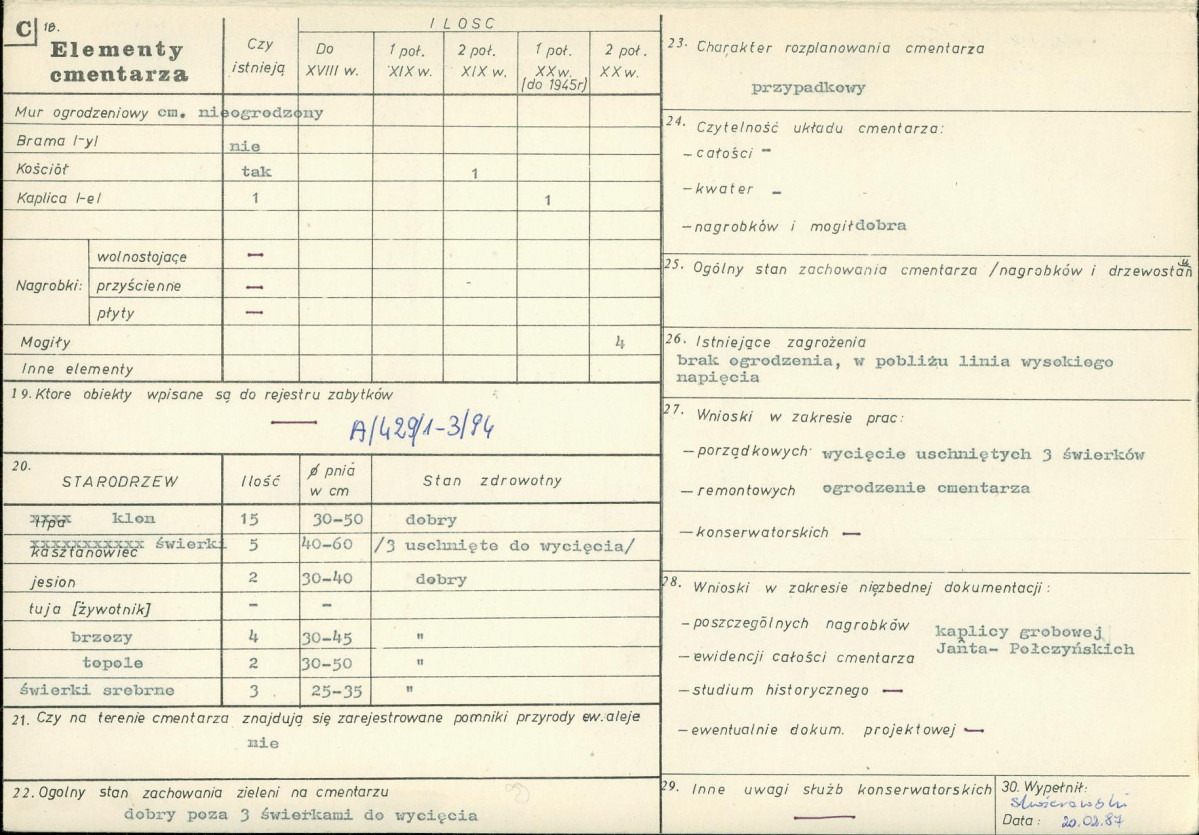 C 18.
Elementy
cmentarza
Czy
istnieją
ILOŚC
Do
XVIII w.
1 poł.
XIX w.
2 poł.
XIX w.
1 poł.
XX w.
(do 1945r)
2 poł.
XX w.
Mur ogrodzeniowy cm. nieogrodzony
Brama /-y/ nie
Kościół tak 1
Kaplica /-e/ 1 1
Nagrobki:
wolnostojące —
przyścienne —
płyty —
Mogiły 4
Inne elementy
19. Ktore obiekty wpisane są do rejestru zabytków
— A/429/1-3/94
20.
STARODRZEW Ilość ø pnia
w cm Stan zdrowotny
lipa klon 15 30-50 dobry
kasztanowiec świerki 5 40-60 /3 uschnięte do wycięcia/
jesion 2 30-40 dobry
tuja [żywotnik] - -
brzozy 4 30-45 "
topole 2 30-50 "
świerki srebrne 3 25-35 "
21. Czy na terenie cmentarza znajdują się zarejestrowane pomniki przyrody ew. aleje
nie
22. Ogolny stan zachowania zieleni na cmentarzu
dobry poza 3 świerkami do wycięcia
23. Charakter rozplanowania cmentarza
przypadkowy
24. Czytelność układu cmentarza:
- całości -
- kwater -
- nagrobków i mogił dobra
25. Ogólny stan zachowania cmentarza /nagrobków i drzewostan
26. Istniejące zagrożenia
brak ogrodzenia, w pobliżu linia wysokiego
napięcia
27. Wnioski w zakresie prac:
- porządkowych wycięcie uschniętych 3 świerków
- remontowych ogrodzenie cmentarza
- konserwatorskich —
28. Wnioski w zakresie nięzbednej dokumentacji:
- poszczególnych nagrobków kaplicy grobowej
Janta- Połczyńskich
- ewidencji całości cmentarza
- studium historycznego —
- ewentualnie dokum. projektowej —
29. Inne uwagi służb konserwatorskich
—
30. Wypełnił:
Data: 20.02.87